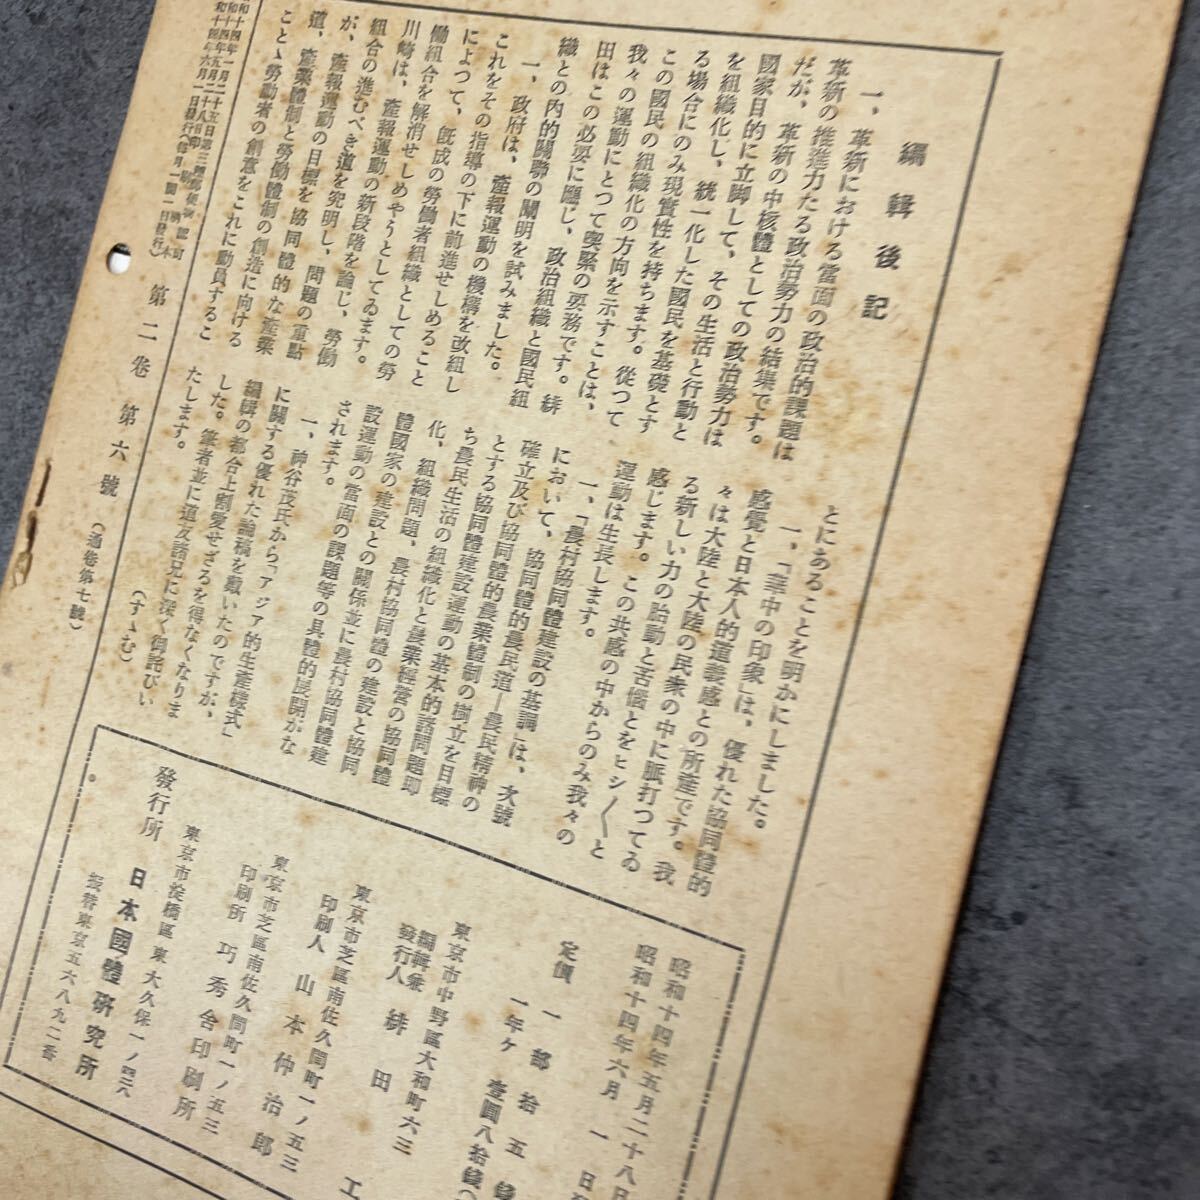 編輯後記
一、革新における當面の政治的課題は
革新の推進力たる政治勢力の結集です。
だが、革新の中核體としての政治勢力は
國家目的に立脚して、その生活と行動と
を組織化し、統一化した國民を基礎とす
る場合にのみ現實性を持ちます。從つて
この國民の組織化の方向を示すことは、
我々の運動にとつて喫緊の要務です。緋
田はこの必要に應じ、政治組織と國民組
織との內的關聯の闡明を試みました。
一、政府は、產報運動の機構を改組し
これをその指導の下に前進せしめること
によつて、旣成の勞働者組織としての勞
働組合を解消せしめやうとしてゐます。
川崎は、產報運動の新段階を論じ、勞働
組合の進むべき道を究明し、問題の重點
が、產報運動の目標を協同體的な產業
道、產業體制と勞働體制の創造に向ける
こと、勞働者の創意をこれに動員するこ
とにあることを明かにしました。
一、「華中の印象」は、優れた協同體的
感覺と日本人的道義感との所產です。我
々は大陸と大陸の民衆の中に脈打つてゐ
る新しい力の胎動と苦惱とをヒシ〳〵と
感じます。この共感の中からのみ我々の
運動は生長します。
一、「農村協同體建設の基調」は、次號
において、協同體的農民道―農民精神の
確立及び協同體的農業體制の樹立を目標
とする協同體建設運動の基本的諸問題卽
ち農民生活の組織化と農業經營の協同體
化、組織問題、農村協同體の建設と協同
體國家の建設との關係並に農村協同體建
設運動の當面の課題等の具體的展開がな
されます。
一、神谷茂氏から「アジア的生產樣式」
に關する優れた論稿を戴いたのですが、
編輯の都合上割愛せざるを得なくなりま
した。筆者並に道友諸兄に深く御詫びい
たします。
(すゝむ)
和十四年一月二十五日第三種郵便物認可
和十四年五月二十八日印刷納本
和十四年六月一日發行(每月一回一日發行)
第二卷 第六號
(通卷第七號)
昭和十四年五月二十八日
昭和十四年六月 一 日發
定價
一部 拾五錢
一年ケ 壹圓八拾錢(
東京市中野區大和町六三
編輯兼
發行人 緋田 工
東京市芝區南佐久間町一ノ五三
印刷人 山本仲治郎
東京市芝區南佐久間町一ノ五三
印刷所 巧秀舍印刷所
東京市淀橋區東大久保一ノ四二六
發行所 日本國體研究所
振替東京五六八九二番